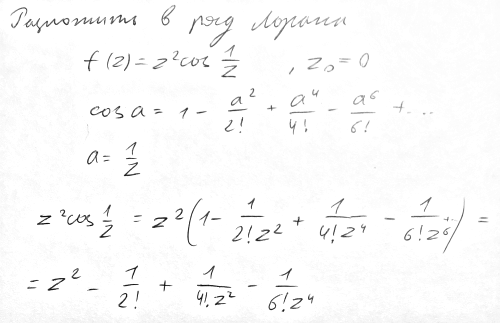 Разложить в ряд Лорана
f(z) = z² cos 1/z , z₀ = 0
cos a = 1 - a²/2! + a⁴/4! - a⁶/6! + ...
a = 1/z
z² cos 1/z = z² (1 - 1/(2!z²) + 1/(4!z⁴) - 1/(6!z⁶) + ..) =
= z² - 1/2! + 1/(4!z²) - 1/(6!z⁴)